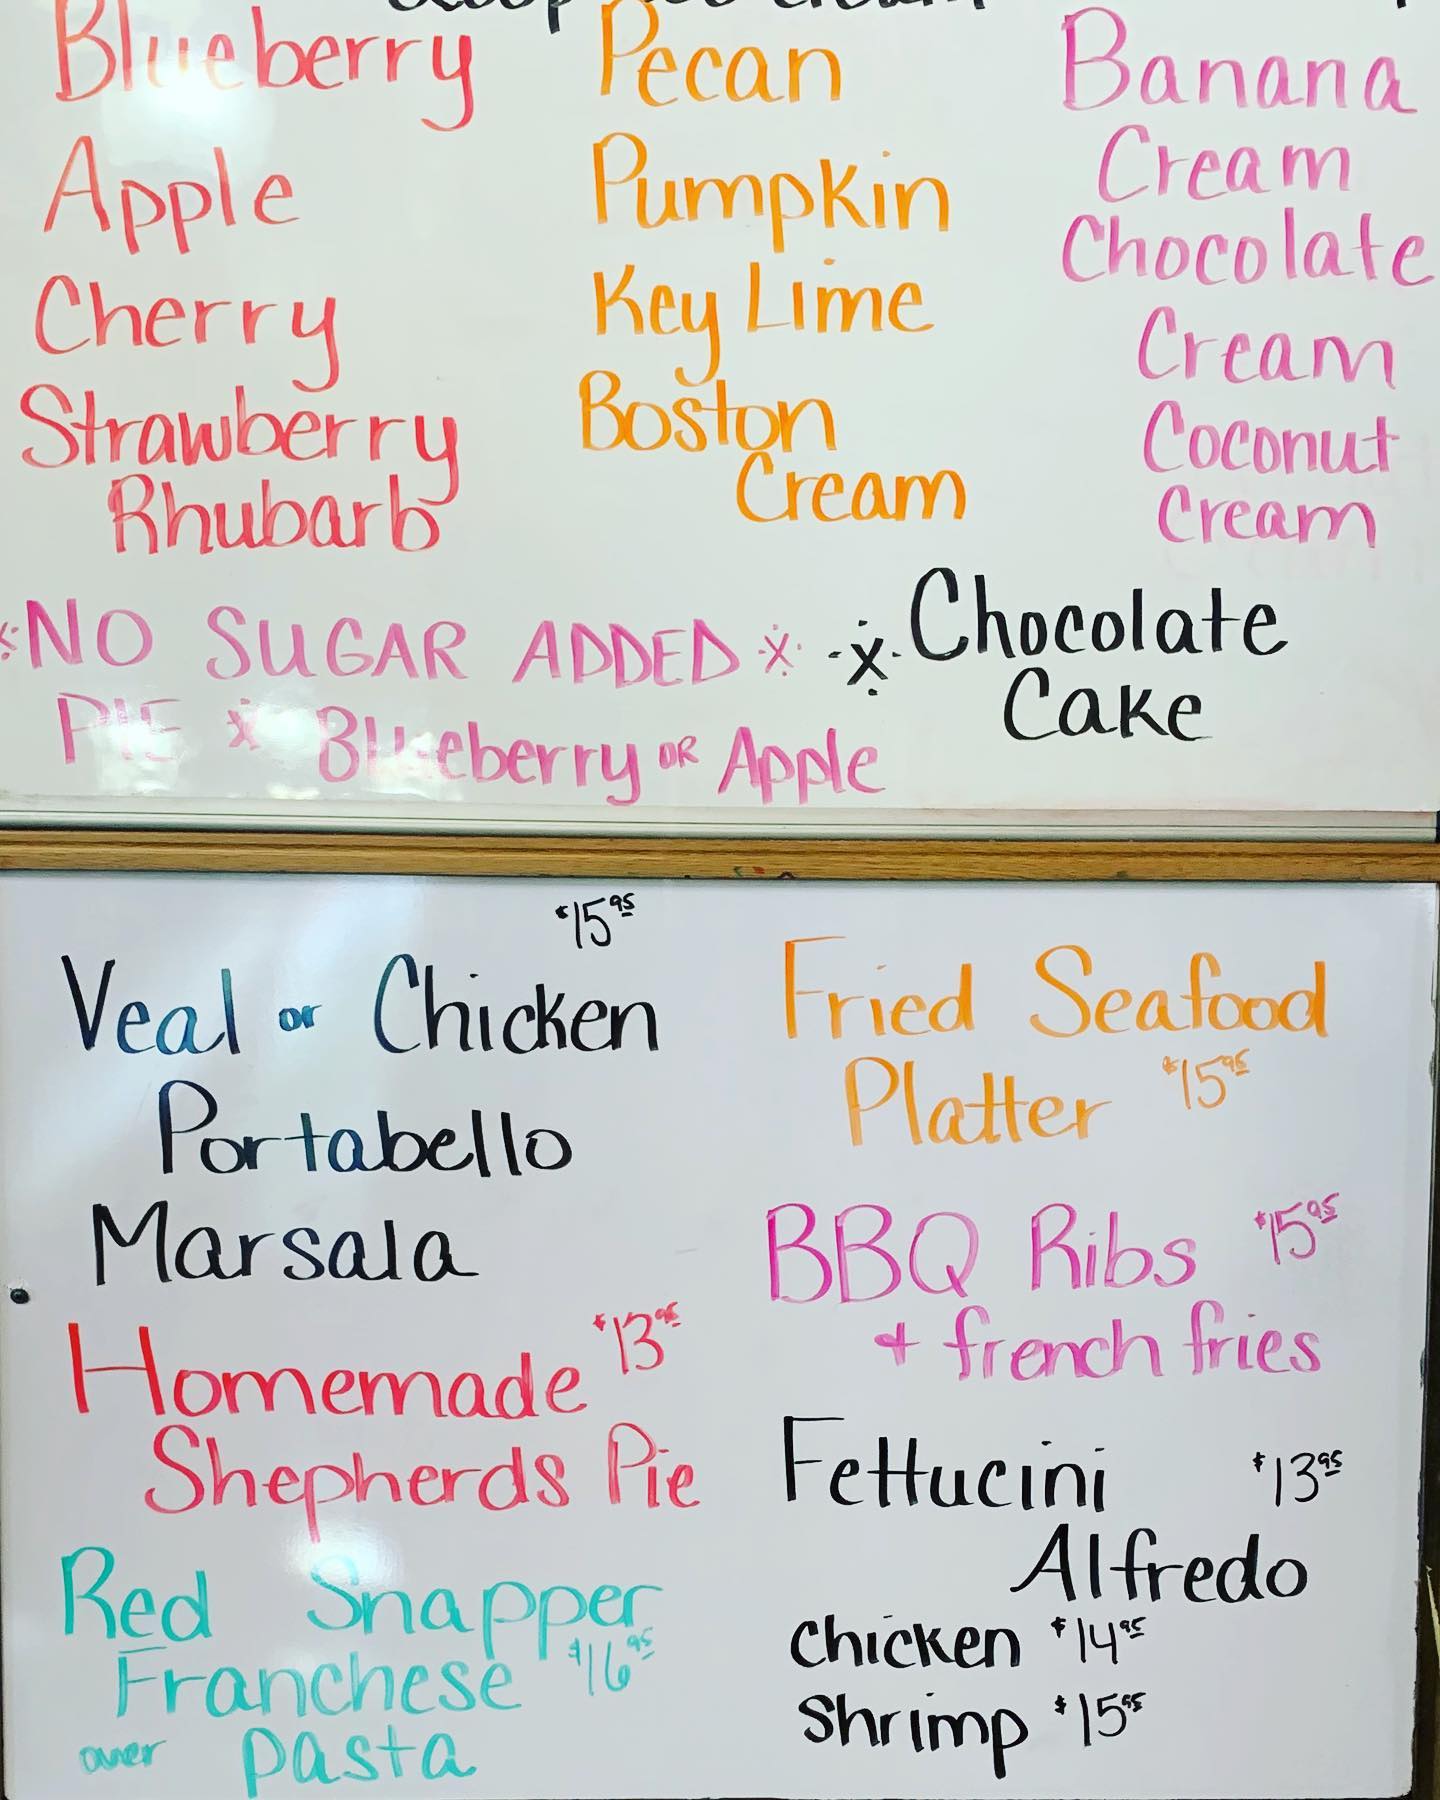 Blueberry
Apple
Cherry
Strawberry
Rhubarb
Pecan
Pumpkin
Key Lime
Boston
Cream
Banana
Cream
Chocolate
Cream
Coconut
Cream
NO SUGAR ADDED
PIE Blueberry OR Apple
Chocolate
Cake
$15.95
Veal or Chicken
Portabello
Marsala
Homemade $13.95
Shepherds Pie
Red Snapper
Franchese $16.95
over pasta
Fried Seafood
Platter $15.95
BBQ Ribs $15.95
+ french fries
Fettucini $13.95
Alfredo
Chicken $14.95
Shrimp $15.95